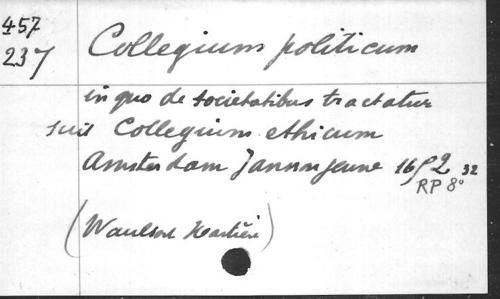 457
237
Collegium politicum
in quo de societatibus tractatur
suit Collegium ethicum
Amsterdam 1652 32
RP 8°
(Waulsort Hastière)